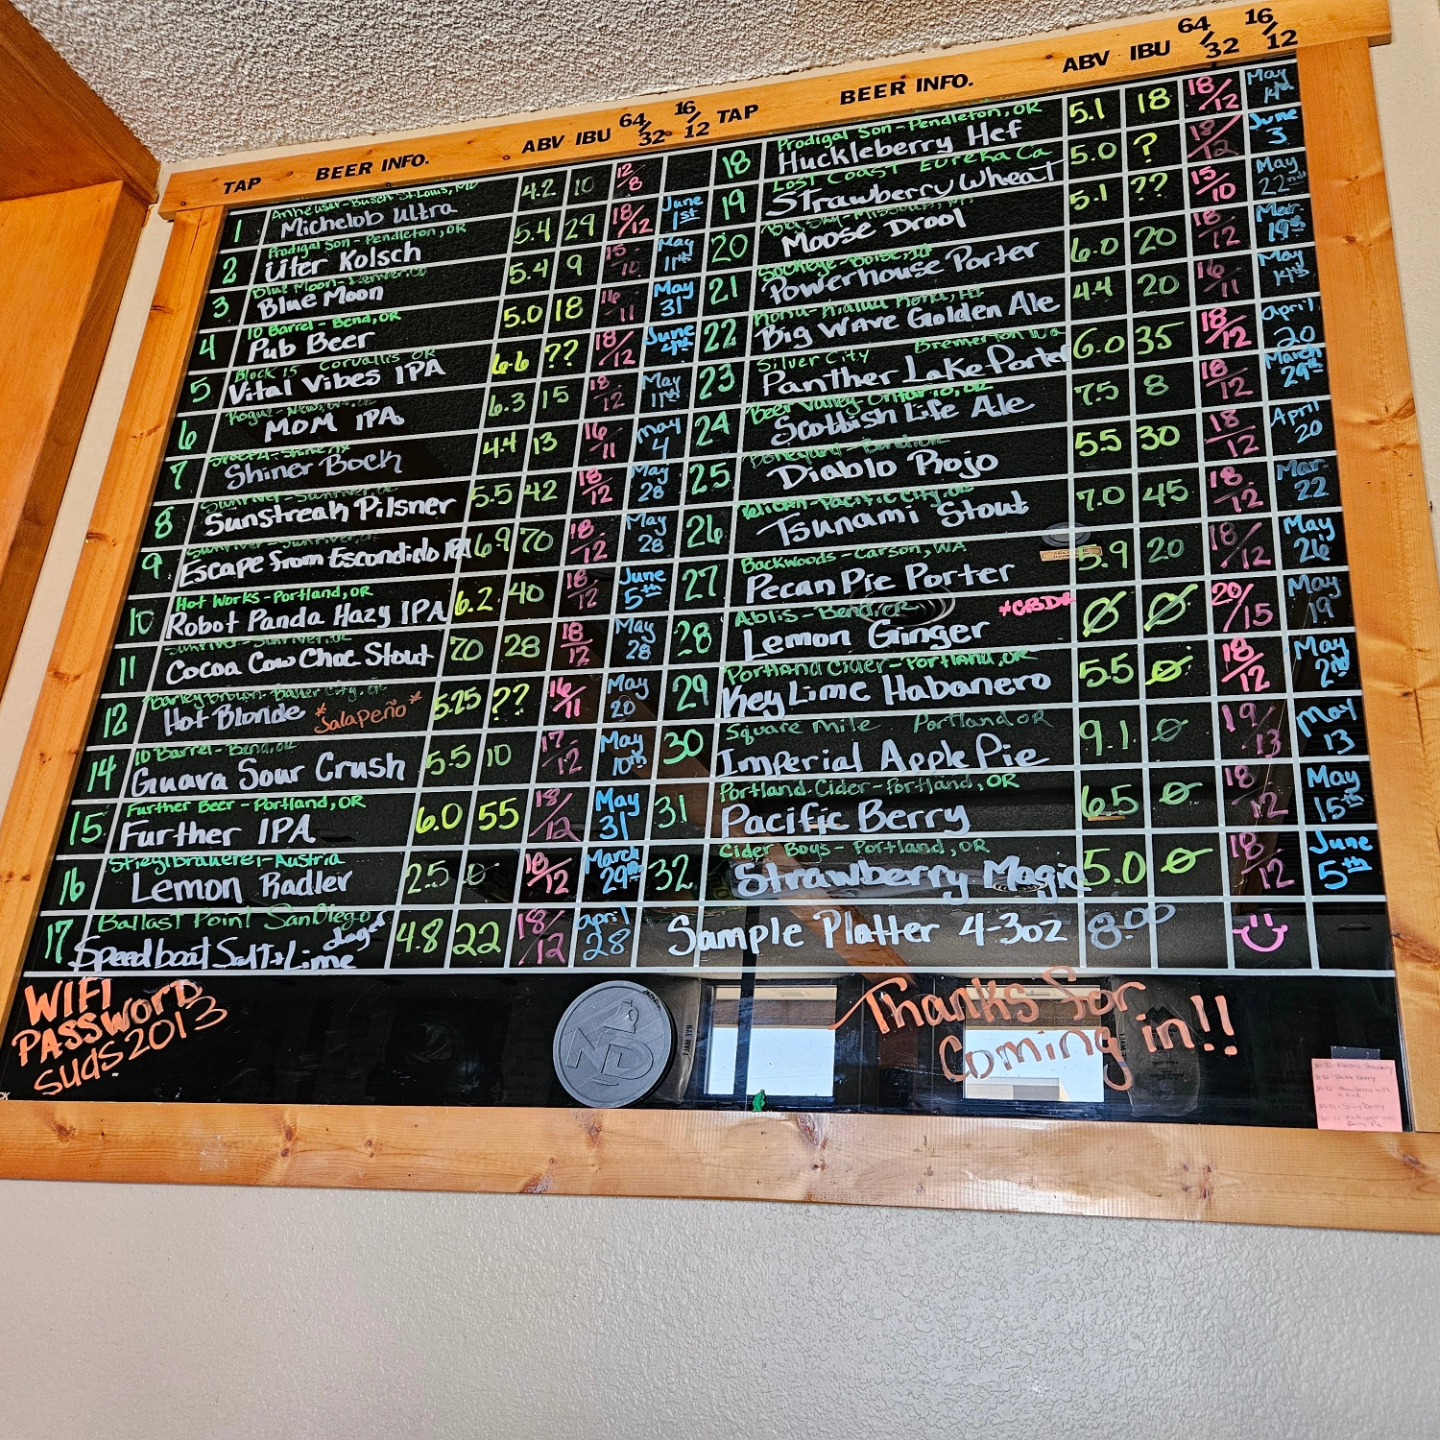 TAP BEER INFO. ABV IBU 64/32 16/12 TAP BEER INFO. ABV IBU 64/32 16/12
Anheuser-Busch St. Louis, MO
1 Michelob Ultra 4.2 10 12/8
Prodigal Son - Pendleton, OR
2 Uter Kolsch 5.4 29 18/12 June 1st
Blue Moon - Denver, CO
3 Blue Moon 5.4 9 15/10 May 11th
10 Barrel - Bend, OR
4 Pub Beer 5.0 18 16/11 May 31
Block 15 Corvallis OR
5 Vital Vibes IPA 6.6 ?? 18/12 June 4th
Rogue -
6 MOM IPA 6.3 15 18/12 May
7 Shiner Bock 4.4 13 16/11 May 4
Sunriver - Sunriver, OR
8 Sunstreak Pilsner 5.5 42 18/12 May 28
Sunriver - Sunriver, OR
9 Escape from Escondido IPA 6.9 70 18/12 May 28
Hot Works - Portland, OR
10 Robot Panda Hazy IPA 6.2 40 18/12 June 5th
Sunriver, OR
11 Cocoa Cow Choc Stout 70 28 18/12 May 28
Barley Brown - Baker City, OR
12 Hot Blonde *Jalapeño* 5.25 ?? 16/11 May 20
10 Barrel - Bend, OR
14 Guava Sour Crush 5.5 10 17/12 May 10th
Further Beer - Portland, OR
15 Further IPA 6.0 55 18/12 May 31
Stiegl Brauerei - Austria
16 Lemon Radler 2.5 ø 18/12 March 29th
Ballast Point San Diego
17 Speedboat Salt + Lime Lager 4.8 22 18/12 April 28
Prodigal Son - Pendleton, OR
18 Huckleberry Hef 5.1 18 18/12 May
Lost Coast Eureka Ca
19 Strawberry Wheat 5.0 ? 18/12 June 3
Big Sky - Missoula, MT
20 Moose Drool 5.1 ?? 15/10 May 22nd
Sockeye - Boise, ID
21 Powerhouse Porter 6.0 20 18/12 Mar. 19th
Kona - Kailua Kona, HI
22 Big Wave Golden Ale 4.4 20 16/11 May 14th
Silver City Bremerton WA
23 Panther Lake Porter 6.0 35 18/12 April 20
Beer Valley - Ontario, OR
24 Scottish Life Ale 7.5 8 18/12 March 29th
Boneyard - Bend, OR
25 Diablo Rojo 5.5 30 18/12 April 20
Pelican - Pacific City, OR
26 Tsunami Stout 7.0 45 18/12 Mar. 22
Backwoods - Carson, WA
27 Pecan Pie Porter 5.9 20 18/12 May 26
Ablis - Bend, OR
28 Lemon Ginger *CBD* Ø Ø 20/15 May 19
Portland Cider - Portland, OR
29 Key Lime Habanero 5.5 ø 18/12 May 2nd
Square Mile Portland OR
30 Imperial Apple Pie 9.1 ø 19/13 May 13
Portland Cider - Portland, OR
31 Pacific Berry 6.5 ø 18/12 May 15th
Cider Boys - Portland, OR
32 Strawberry Magic 5.0 ø 18/12 June 5th
Sample Platter 4-3oz 8.00
WIFI
PASSWORD
suds2013
Thanks for
coming in!!